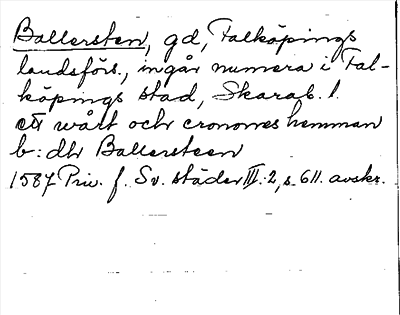 Ballersten, gd, Falköpings
landsförs., ingår numera i Fal-
köpings stad, Skarab. l.
ett wårt och cronones hemman
b: dhr Ballersteen
1587 Priv. f. Sv. städer III:2, s. 611. avskr.